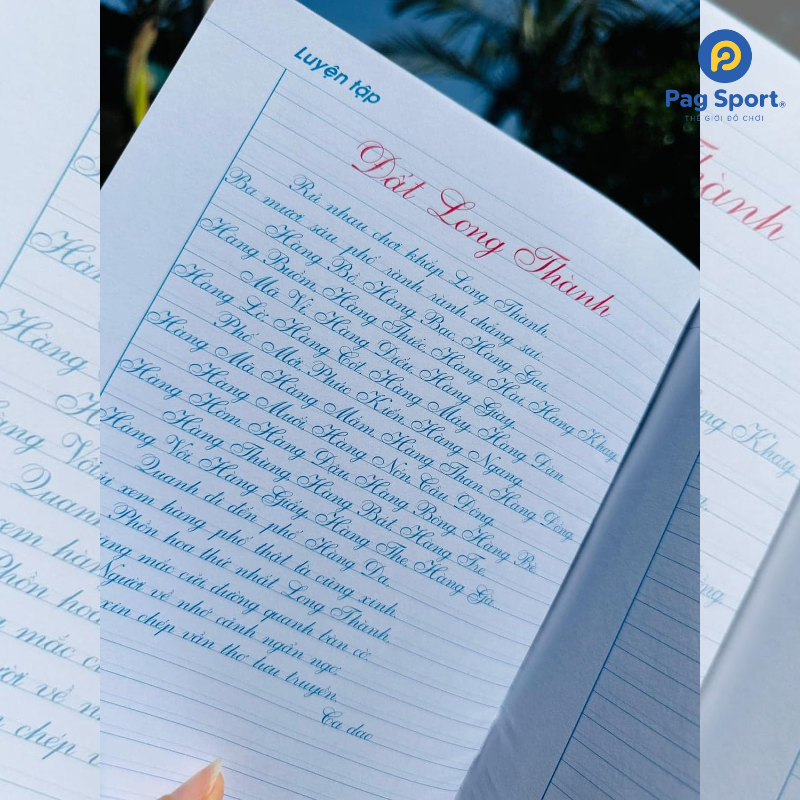 Luyện tập
Đất Long Thành
Rủ nhau chơi khắp Long Thành.
Ba mươi sáu phố rành rành chẳng sai.
Hàng Bồ, Hàng Bạc, Hàng Gai
Hàng Buồm, Hàng Thiếc, Hàng Hài, Hàng Khay
Mã Vĩ, Hàng Điếu, Hàng Giày
Hàng Lờ, Hàng Cót, Hàng Mây, Hàng Đàn
Phố Mới, Phúc Kiến, Hàng Ngang
Hàng Mã, Hàng Mắm, Hàng Than, Hàng Đồng
Hàng Muối, Hàng Nón, Cầu Đông
Hàng Hòm, Hàng Đậu, Hàng Bông, Hàng Bè
Hàng Thùng, Hàng Bát, Hàng Tre
Hàng Vôi, Hàng Giấy, Hàng The, Hàng Gà
Quanh đi đến phố Hàng Da
xem hàng phố thật là cũng xinh.
Phồn hoa thứ nhất Long Thành.
mắc cửi đường quanh bàn cờ.
Người về nhớ cảnh ngẩn ngơ.
xin chép vần thơ lưu truyền.
Ca dao
Pag Sport®
THẾ GIỚI ĐỒ CHƠI